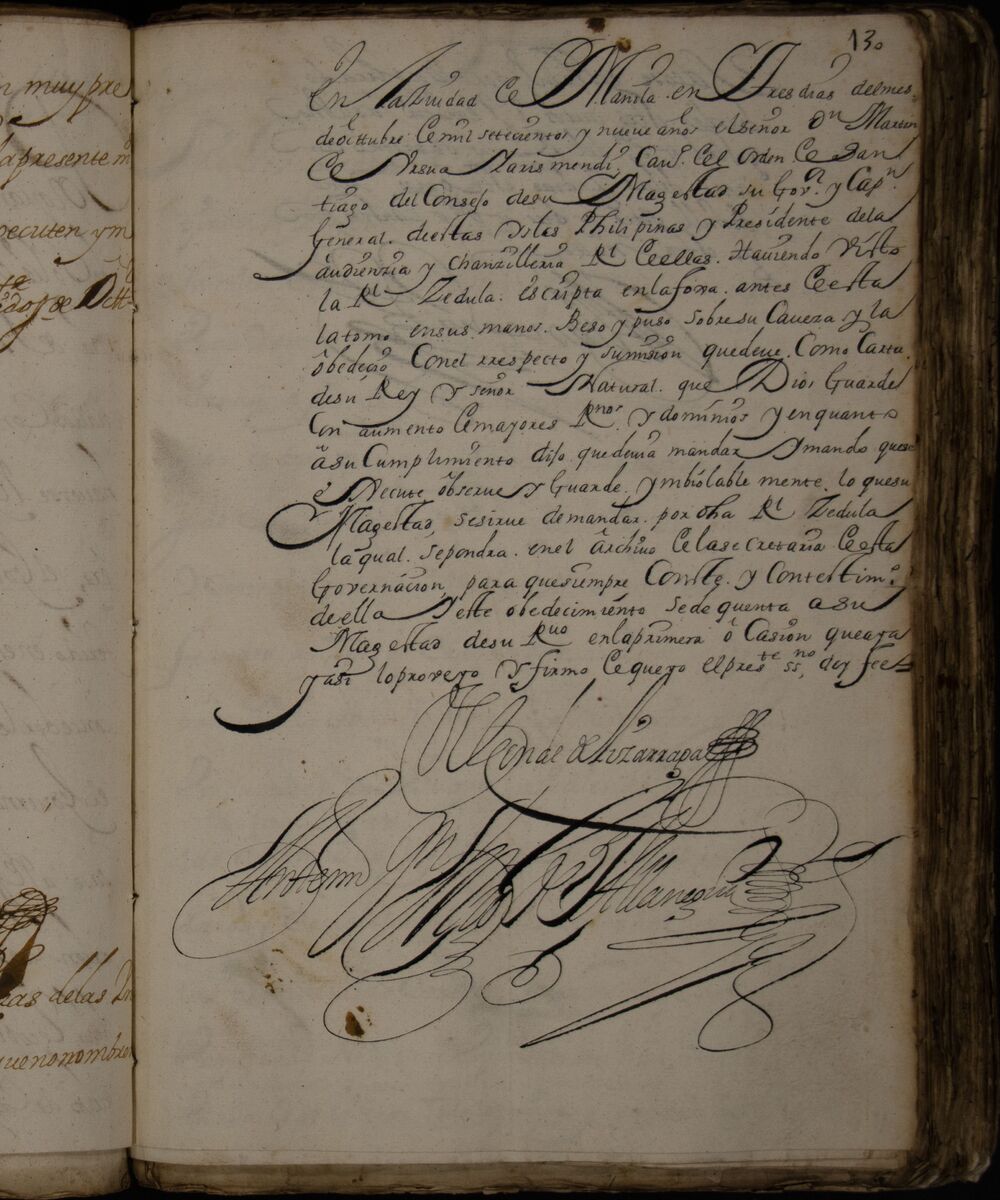 n muy pre
la presente m
pecuten y m
zas delas Yn
que no nombro
13.
En la Ziudad de Manila en Tres dias del mes
de Octtubre de mil setecientos y nueve años el señor Dn Martin
de Vrsua Y arismendi, Cauo. del orden de San
tiago del Consejo de su Magestad su Govor. y Capn.
General. destas Yslas Philipinas y Presidente dela
audienzia y chanzilleria Rl de ellas. Haviendo Visto
la Rl Zedula. escripta en la foxa. antes de esta
la tomo en sus manos. Beso y puso sobre su Caveza y la
obedecio Con el rrespecto y sumision que deve. Como Carta.
de su Rey y señor Natural. que Dios Guarde
Con aumento de mayores Rnos. y dominios y en quanto
â su Cumplimiento dijo que devia mandar y mando que se
execute observe y Guarde. ymbiolable mente. lo que su
Magestad, se sirve de mandar. por dha Rl Zedula
la qual. se pondra. en el Archivo de la secretaria de esta
Governacion, para que siempre Conste. y Con testimo.
de ella y este obedecimiento se de quenta a su
Magestad de su Rno en la primera ô Casion que aya
y assi lo proveyo y firmo de que yo el preste. ssno, doy fee
de Lizarraga
Antemi